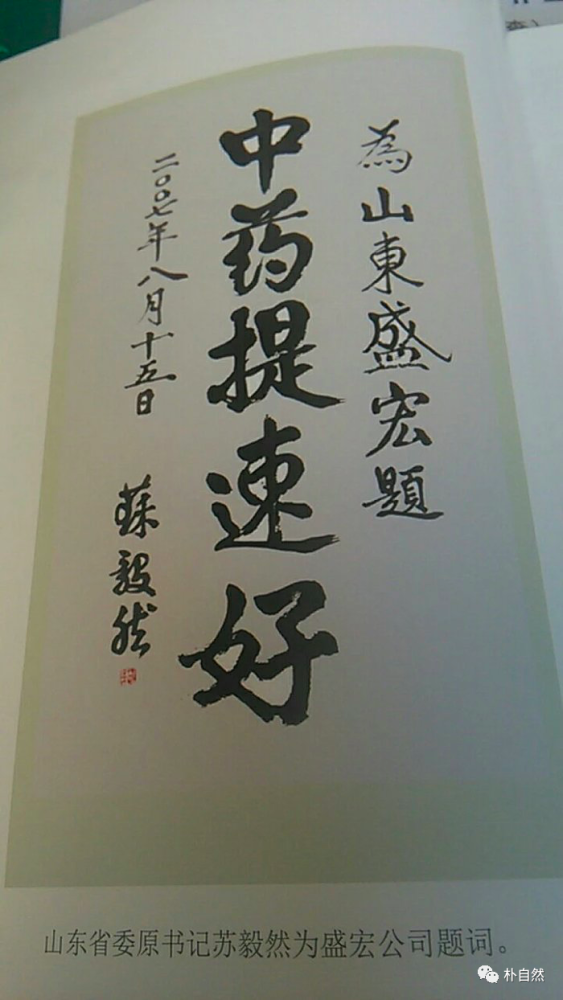 為山東盛宏題
中药提速好
二〇〇七年八月十五日
蘇毅然
山东省委原书记苏毅然为盛宏公司题词。
朴自然